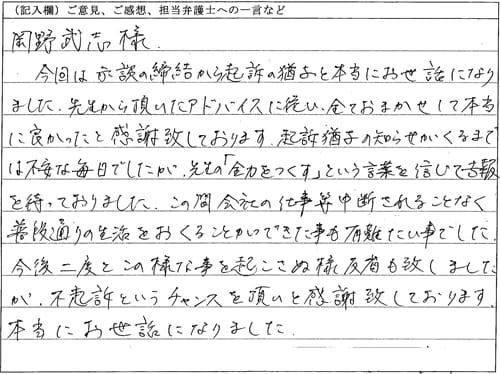 (記入欄)ご意見、ご感想、担当弁護士への一言など
岡野武志様.
今回は示談の締結から起訴の猶予と本当にお世話になり
ました. 先生から頂いたアドバイスに従い、全ておまかせして本当
に良かったと感謝致しております. 起訴猶予の知らせがくるまで
は不安な毎日でしたが、先生の「全力をつくす」という言葉を信じて吉報
を待っておりました. この間会社の仕事等中断されることなく
普段通りの生活をおくることができた事も有難たい事でした.
今後二度とこの様な事を起こさぬ様反省も致しました
が、不起訴というチャンスを頂いと感謝致しております.
本当にお世話になりました.